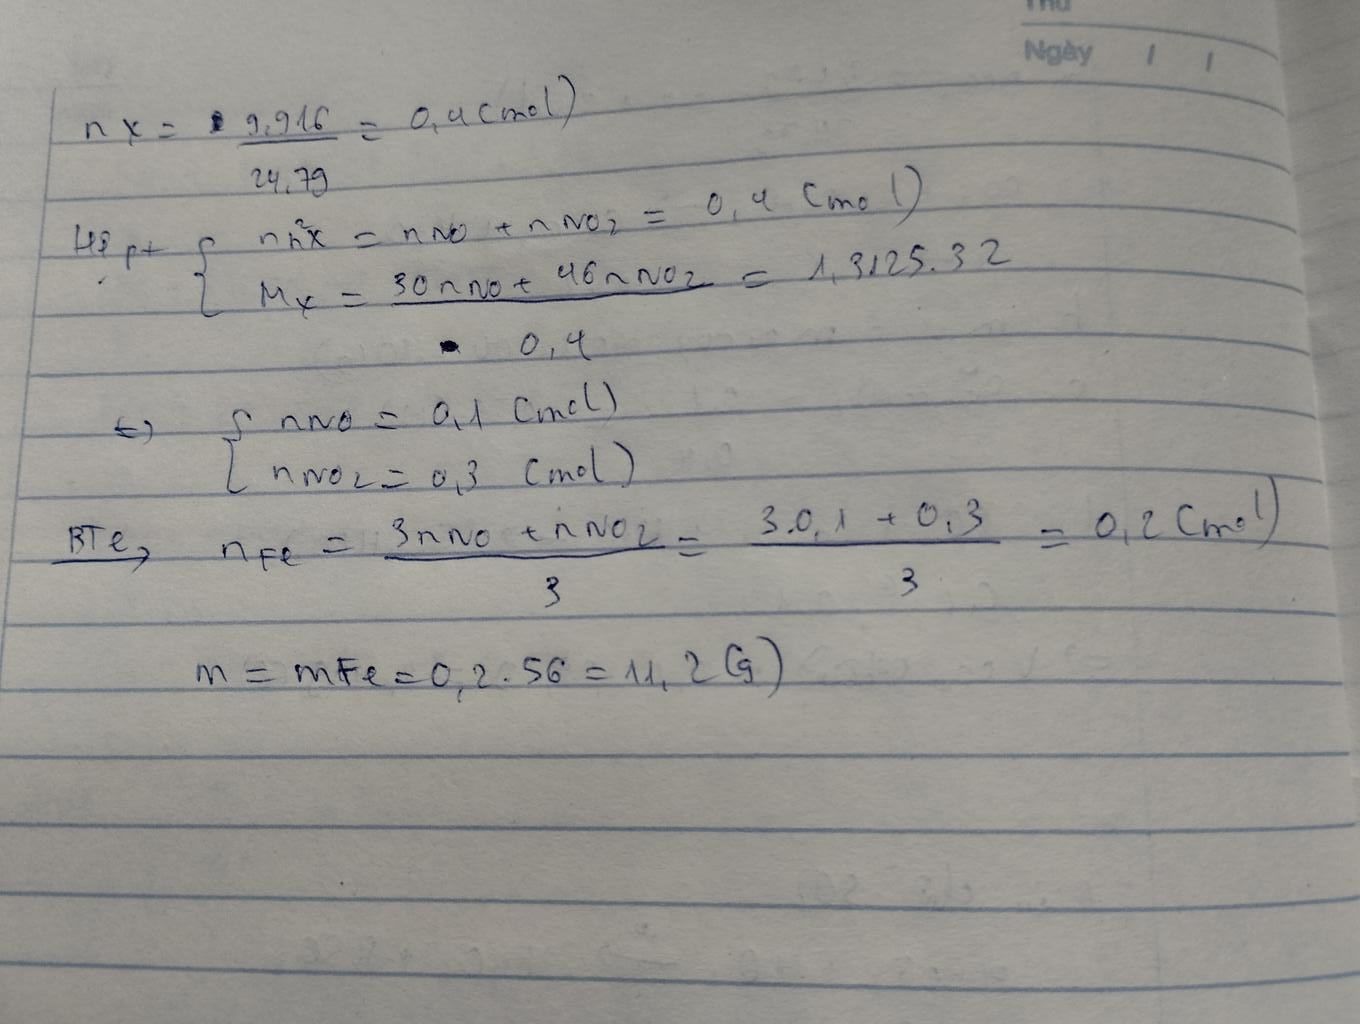 Thứ
Ngày / /
nX = 9,916 / 24,79 = 0,4 (mol)
Hệ pt { nhhX = nNO + nNO2 = 0,4 (mol)
MX = 30nNO + 46nNO2 / 0,4 = 1,3125.32
<=> { nNO = 0,1 (mol)
nNO2 = 0,3 (mol)
BTe, nFe = 3nNO + nNO2 / 3 = 3.0,1 + 0,3 / 3 = 0,2 (mol)
m = mFe = 0,2.56 = 11,2 (g)